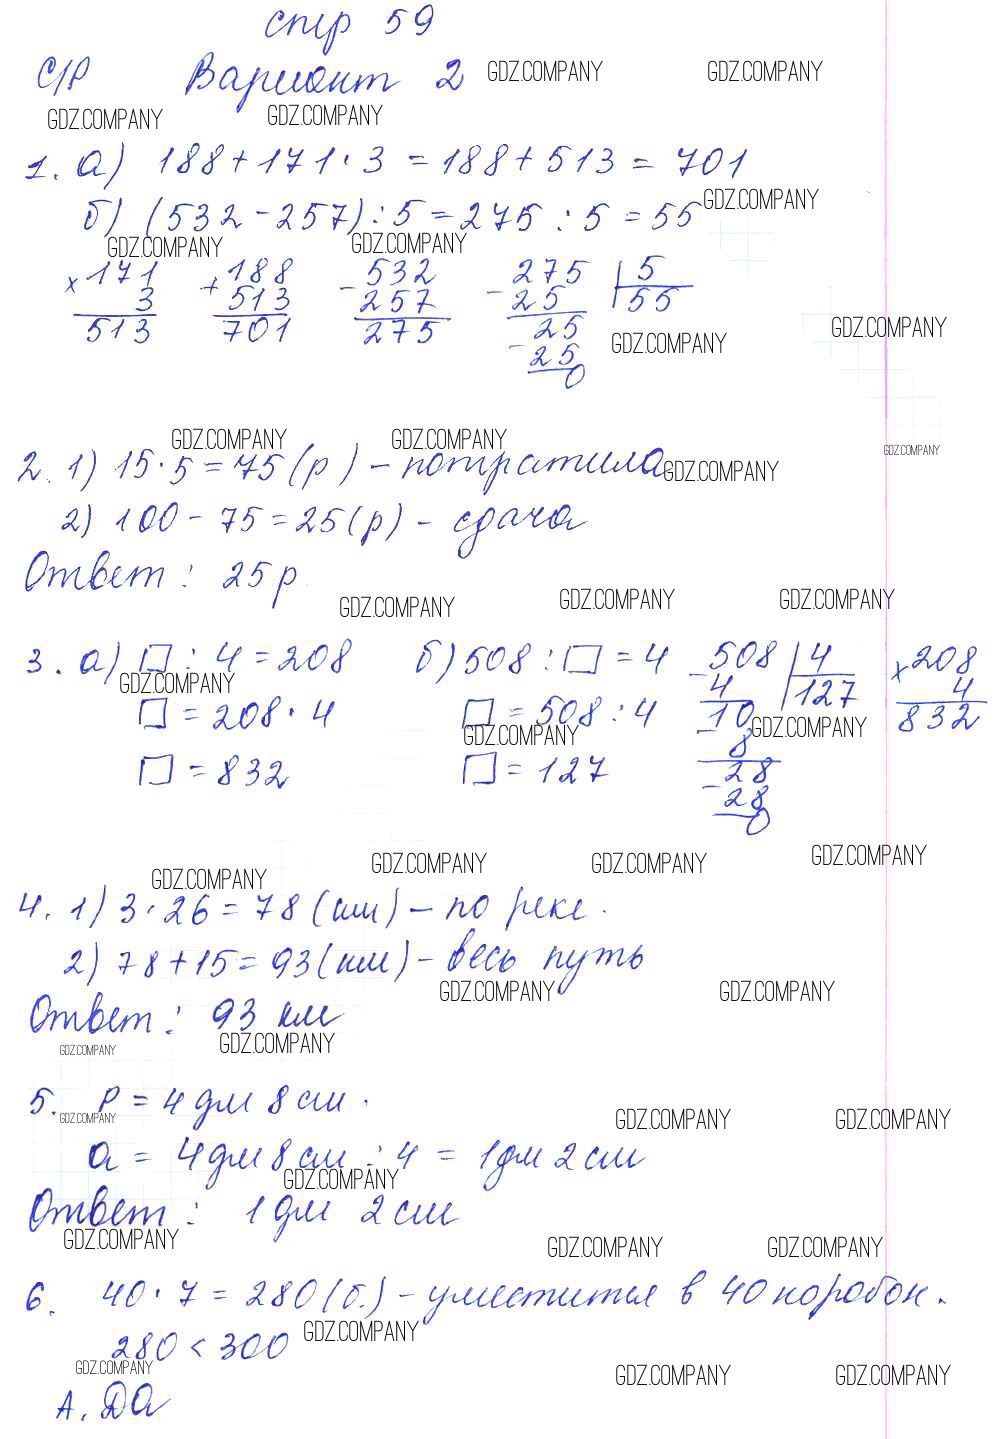 стр 59
С/Р Вариант 2 GDZ.COMPANY GDZ.COMPANY
GDZ.COMPANY GDZ.COMPANY
1. а) 188 + 171 · 3 = 188 + 513 = 701
б) (532 - 257) : 5 = 275 : 5 = 55 GDZ.COMPANY
GDZ.COMPANY GDZ.COMPANY
× 171 + 188 - 532 - 275 | 5
3 513 257 25 55
513 701 275 25
GDZ.COMPANY GDZ.COMPANY
- 25
0
GDZ.COMPANY GDZ.COMPANY GDZ.COMPANY
2. 1) 15 · 5 = 75 (р) - потратила GDZ.COMPANY
2) 100 - 75 = 25 (р) - сдача
Ответ: 25 р
GDZ.COMPANY GDZ.COMPANY GDZ.COMPANY
3. а) □ : 4 = 208 б) 508 : □ = 4 - 508 | 4 × 208
GDZ.COMPANY 4 127 4
□ = 208 · 4 □ = 508 : 4 - 10 832
GDZ.COMPANY GDZ.COMPANY
8
□ = 832 □ = 127 - 28
28
0
GDZ.COMPANY GDZ.COMPANY GDZ.COMPANY GDZ.COMPANY
4. 1) 3 · 26 = 78 (км) - по реке.
2) 78 + 15 = 93 (км) - весь путь
GDZ.COMPANY GDZ.COMPANY
Ответ: 93 км
GDZ.COMPANY GDZ.COMPANY
5. P = 4 дм 8 см.
GDZ.COMPANY GDZ.COMPANY GDZ.COMPANY
a = 4 дм 8 см : 4 = 1 дм 2 см
GDZ.COMPANY
Ответ: 1 дм 2 см
GDZ.COMPANY GDZ.COMPANY GDZ.COMPANY
6. 40 · 7 = 280 (б.) - уместится в 40 коробок.
280 < 300 GDZ.COMPANY
GDZ.COMPANY GDZ.COMPANY GDZ.COMPANY
А. ДА